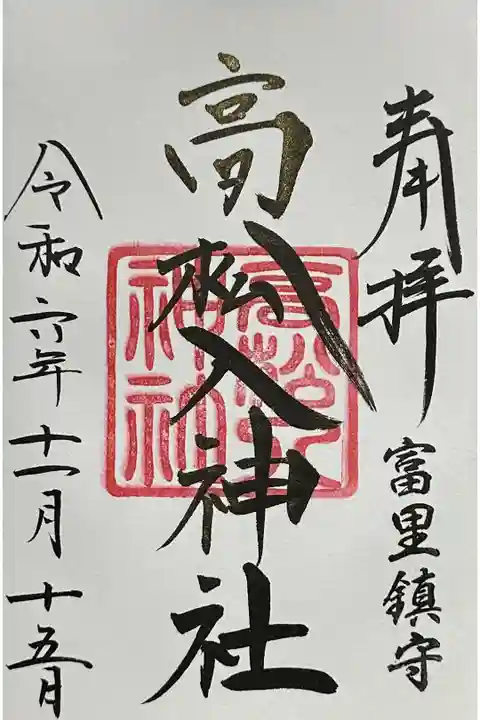 奉拝
富里鎮守
高松入神社
高松入神社
令和六年十一月十五日